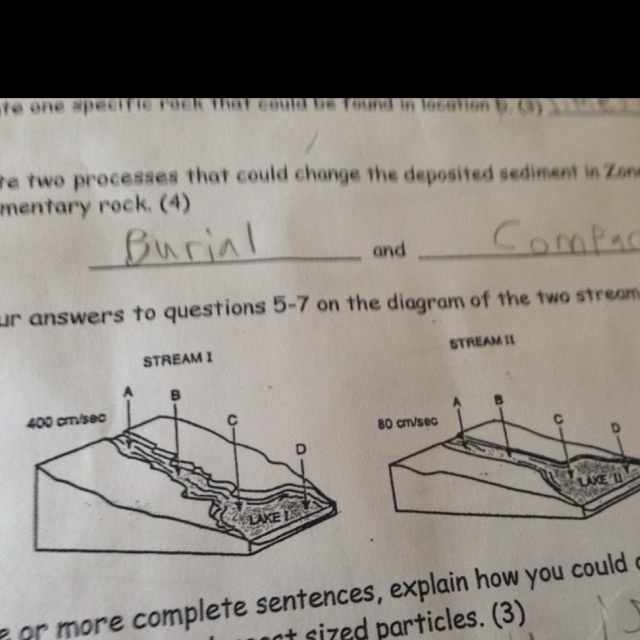 te one specific rock that could be found in location D. (3)
te two processes that could change the deposited sediment in Zone
mentary rock. (4)
Burial and Compac
ur answers to questions 5-7 on the diagram of the two stream
STREAM I STREAM II
A B C D A B C D
400 cm/sec 80 cm/sec
LAKE I LAKE II
e or more complete sentences, explain how you could
sized particles. (3)